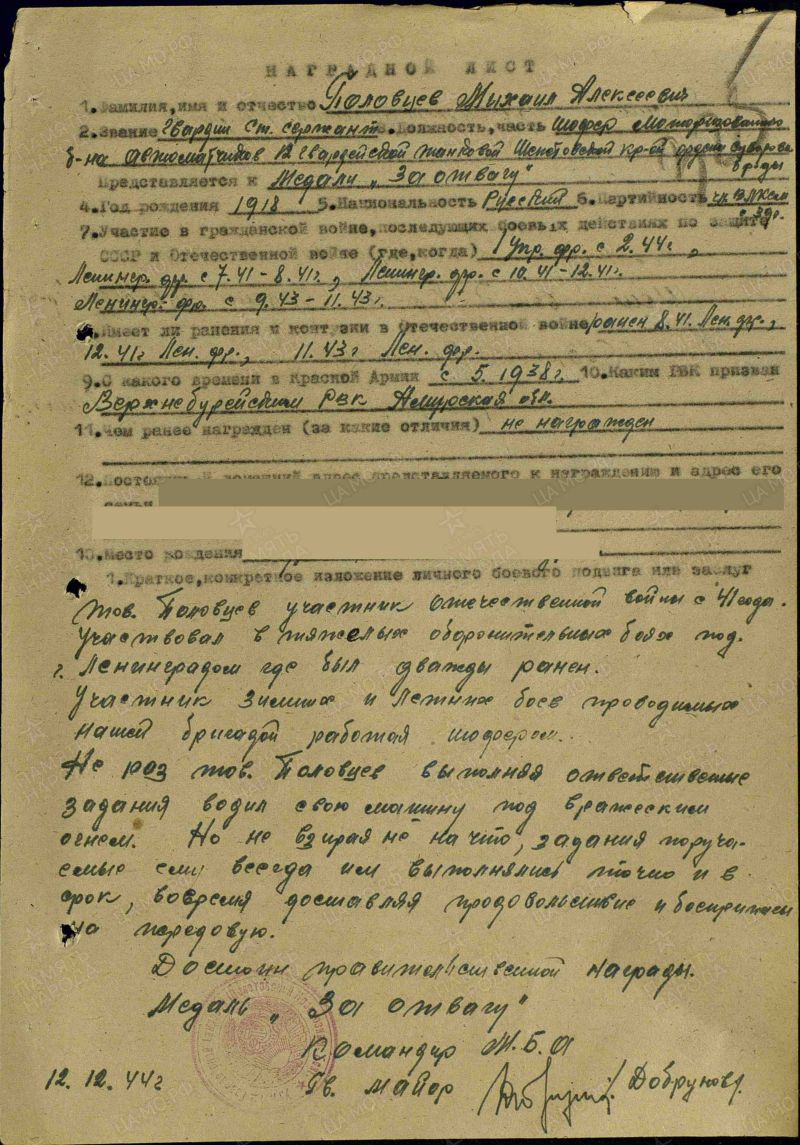 НАГРАДНОЙ ЛИСТ
1. Фамилия, имя и отчество Половцев Михаил Алексеевич
2. Звание Гвардии Ст. сержант. Должность, часть шофер Моторизованного
б-на автоматчиков 12 гвардейской танковой Шепетовской кр-ой ордена Суворова
бр-ды
Представляется к Медали "За отвагу"
4. Год рождения 1918 5. Национальность Русский 6. Партийность чл. ВЛКСМ
с 39г.
7. Участие в гражданской войне, последующих боевых действиях по защите
СССР и Отечественной войне (где, когда) 1 Укр. фр. с 2.44г,
Ленингр. фр. с 7.41 - 8.41г., Ленингр. фр. с 10.41 - 12.41г.
Ленингр. фр. с 9.43 - 11.43г.
8. Имеет ли ранения и контузии в Отечественной войне ранен 8.41. Лен. фр.,
12.41г Лен. фр., 11.43г Лен. фр.
9. С какого времени в Красной Армии с 5.1938г. 10. Каким РВК призван
Верхнебурейским РВК Амурская обл.
11. Чем ранее награжден (за какие отличия) не награжден
12. Постоянный домашний адрес представляемого к награждению и адрес его
семьи
13. Место рождения
1. Краткое, конкретное изложение личного боевого подвига или заслуг
Тов. Половцев участник Отечественной войны с 41 года.
Участвовал в тяжелых оборонительных боях под
г. Ленинградом где был дважды ранен.
Участник зимних и летних боев проводимых
нашей бригадой работая шофером.
Не раз тов. Половцев выполняя ответственые
задания водил свою машину под вражеским
огнем. Но не взирая не на что, задания поруча-
емые ему всегда им выполнялись точно и в
срок, вовремя доставляя продовольствие и боеприпасы
на передовую.
Достоин правительственной награды.
Медаль "За отвагу"
Командир М.Б.А
12.12.44г Гв. майор /Добрунов/.